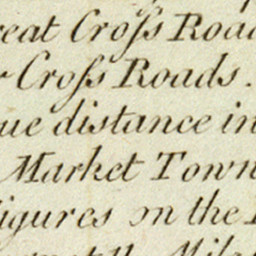 reat Croſs Road
r Croſs Roads.
ue distance in
Market Town
igures on the